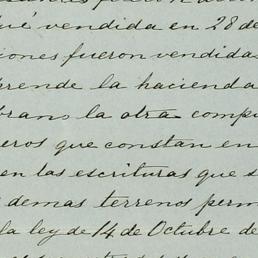 ué vendida en 28 de
iones fueron vendidas
prende la hacienda
brans la otra compu
eros que constan en
en las escrituras que s
demas terrenos perm
la ley de 14 de Octubre de